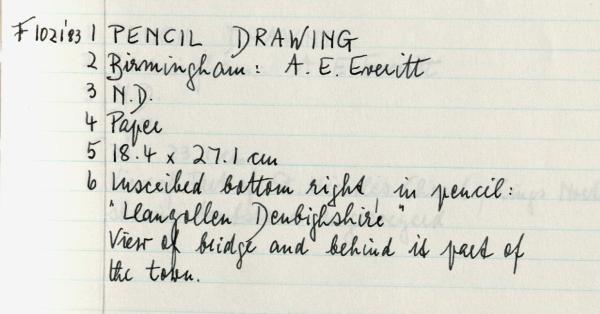 F102i'83 1 PENCIL DRAWING
2 Birmingham: A. E. Everitt
3 N.D.
4 Paper
5 18.4 x 27.1 cm
6 Inscribed bottom right in pencil:
"Llangollen Denbighshire"
View of bridge and behind it part of
the town.